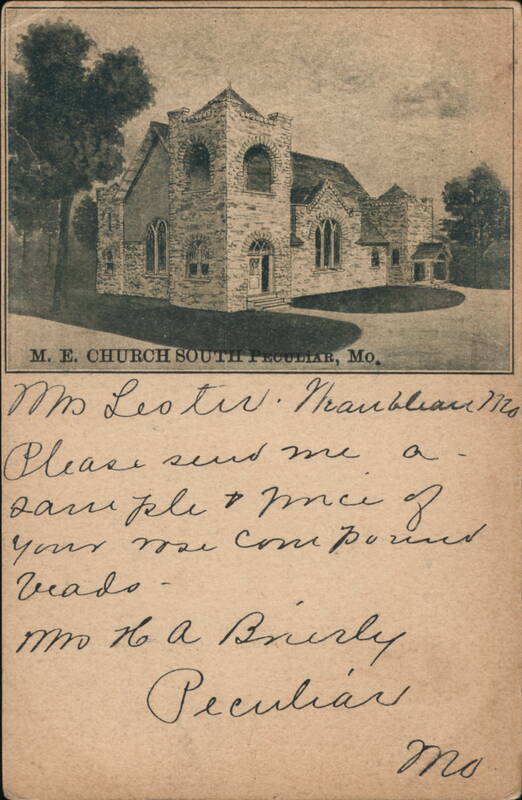 M. E. CHURCH SOUTH PECULIAR, MO.
Mrs Lester. Mo
Please send me a -
sample & price of
your rose compound
beads -
Mrs H A Brierly
Peculiar
Mo